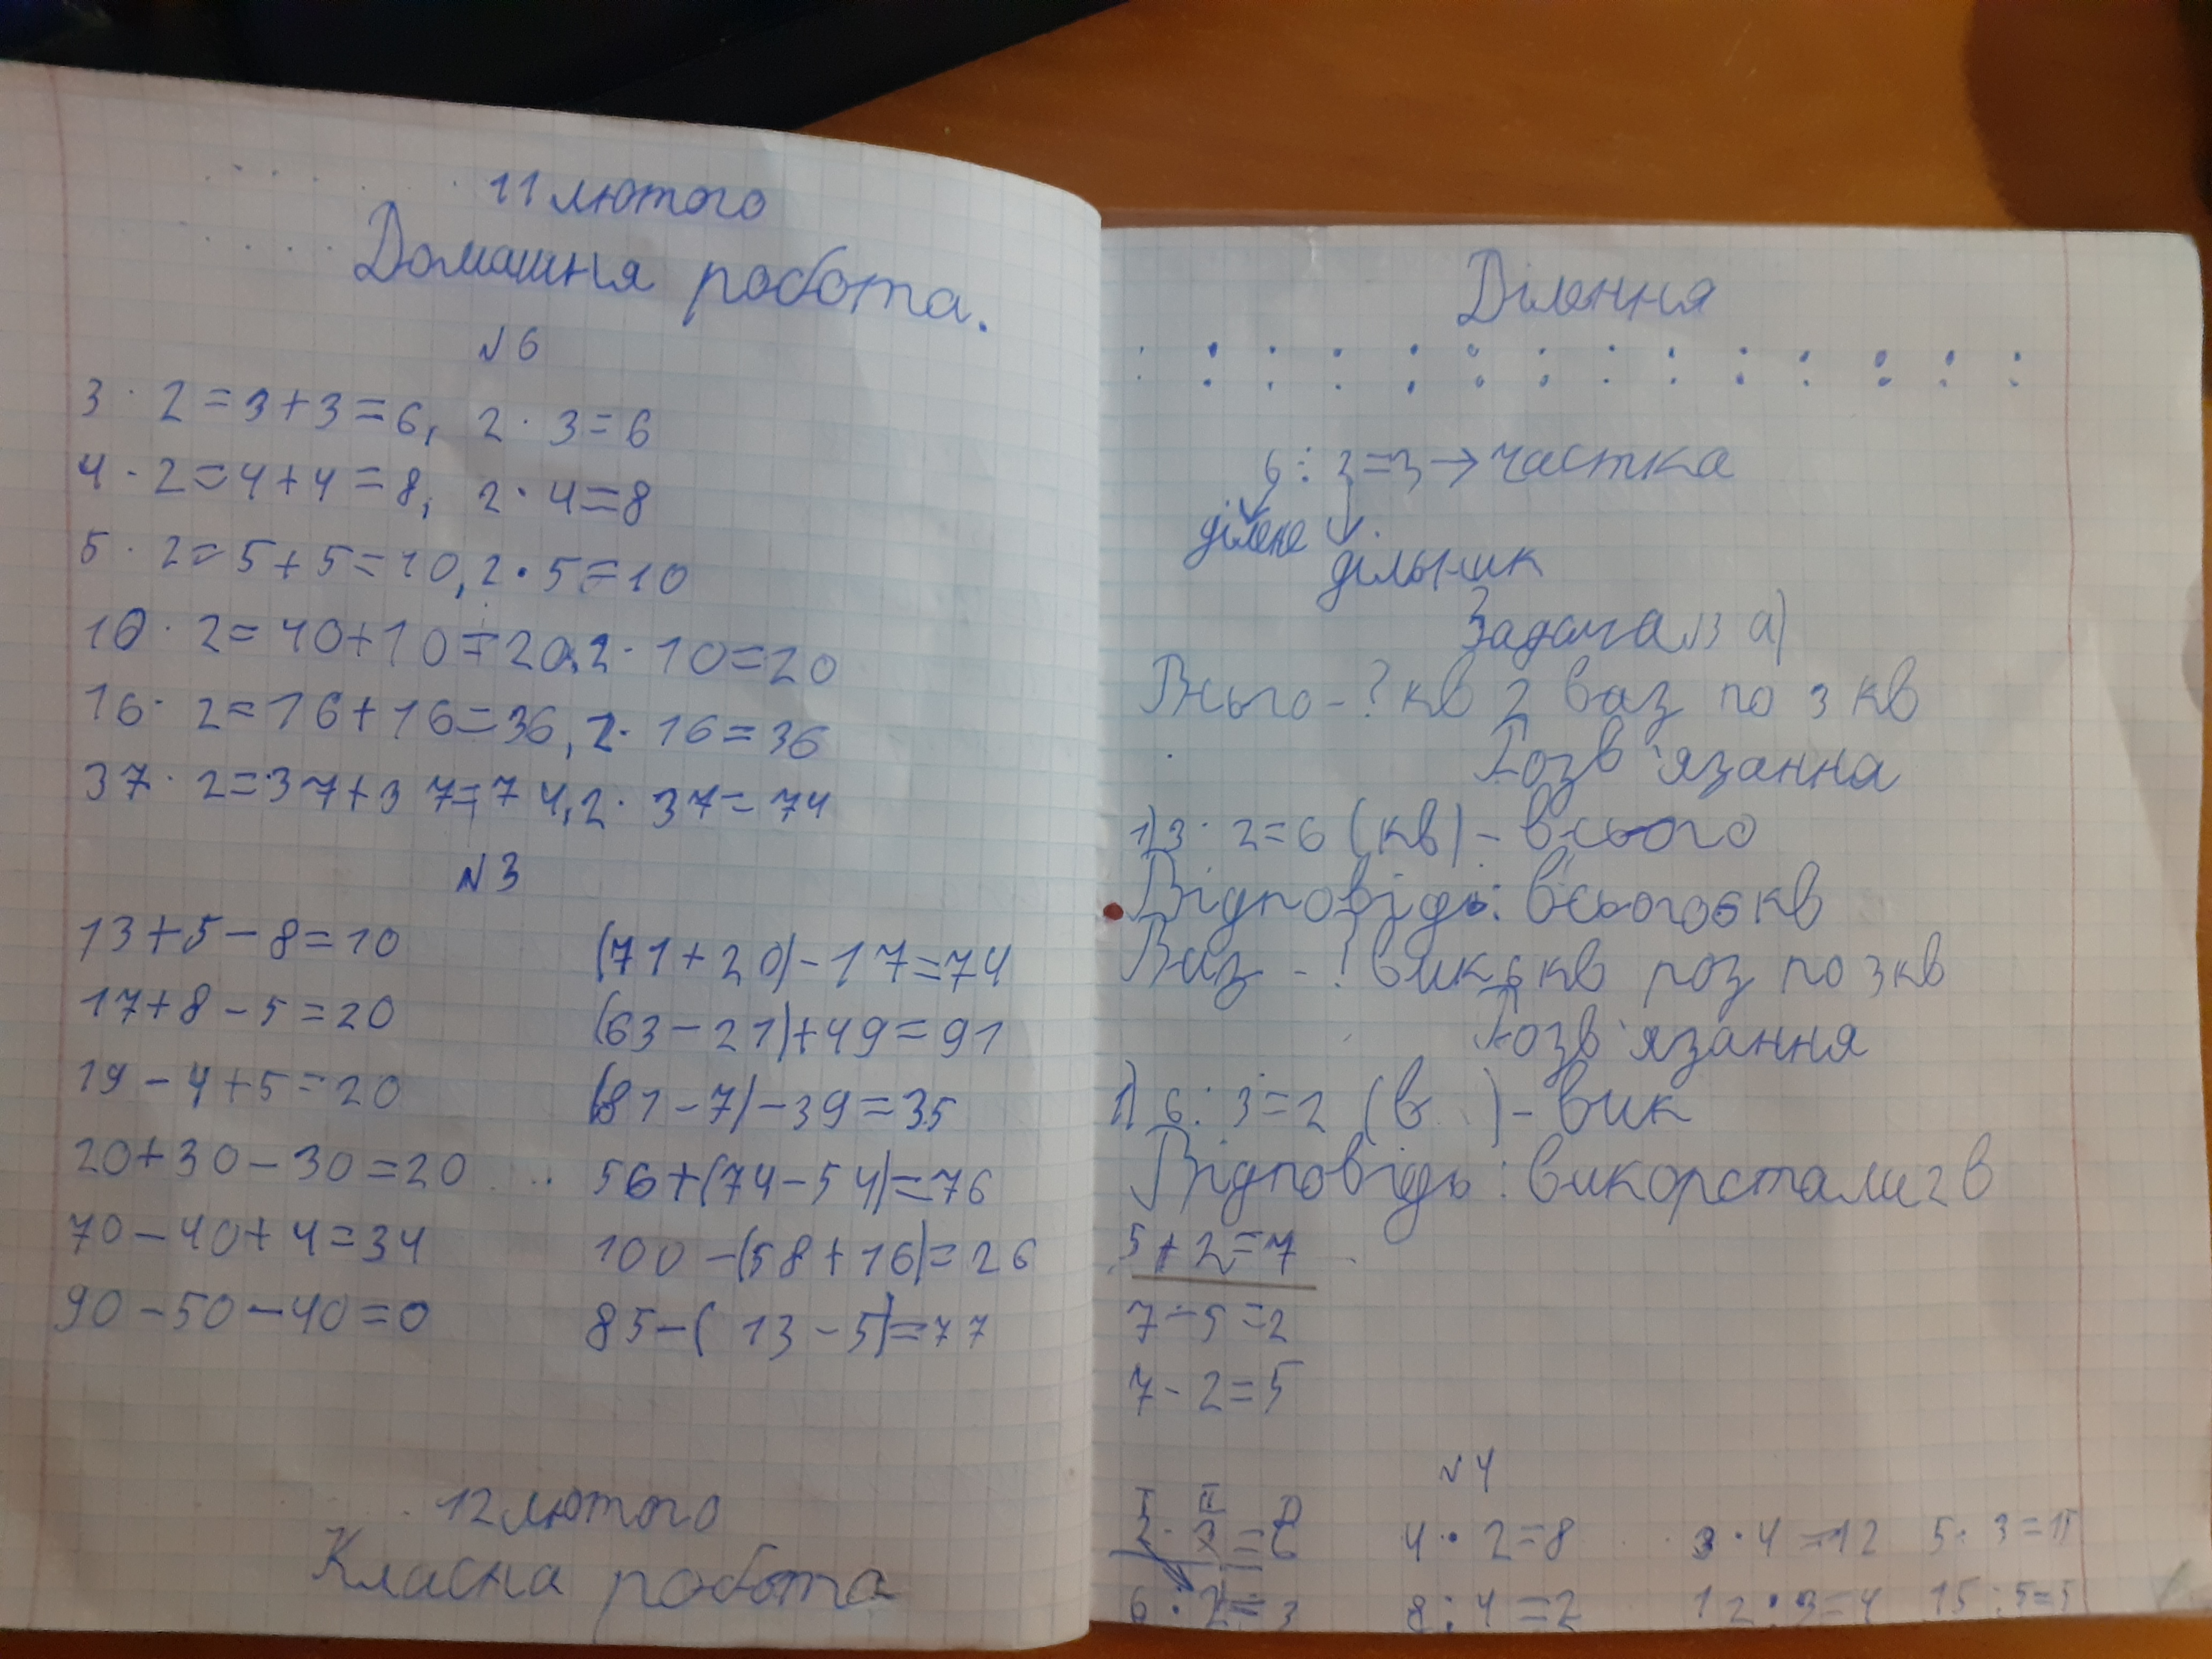 11 лютого
Домашня робота.
№6
3 · 2 = 3 + 3 = 6, 2 · 3 = 6
4 · 2 = 4 + 4 = 8, 2 · 4 = 8
5 · 2 = 5 + 5 = 10, 2 · 5 = 10
10 · 2 = 10 + 10 = 20, 2 · 10 = 20
16 · 2 = 16 + 16 = 36, 2 · 16 = 36
37 · 2 = 37 + 37 = 74, 2 · 37 = 74
№3
13 + 5 - 8 = 10 (71 + 20) - 17 = 74
17 + 8 - 5 = 20 (63 - 21) + 49 = 91
19 - 4 + 5 = 20 (81 - 7) - 39 = 35
20 + 30 - 30 = 20 56 + (74 - 54) = 76
70 - 40 + 4 = 34 100 - (58 + 16) = 26
90 - 50 - 40 = 0 85 - (13 - 5) = 77
12 лютого
Класна робота
Ділення
: : : : : : : : : : : : : :
6 : 2 = 3 → частка
ділене
дільник
Задача №3 а)
Всього - ? кв 2 ваз по 3 кв
Розв'язанна
1) 3 · 2 = 6 (кв) - всього
Відповідь: всього 6 кв
Ваз - ? вик 6 кв роз по 3 кв
Розв'язання
1) 6 : 3 = 2 (в ) - вик
Відповідь: викорстали 2 в
5 + 2 = 7
7 - 5 = 2
7 - 2 = 5
№4
I II D
2 · 3 = 6 4 · 2 = 8 3 · 4 = 12 5 · 3 = 15
6 : 2 = 3 8 : 4 = 2 12 : 3 = 4 15 : 5 = 3